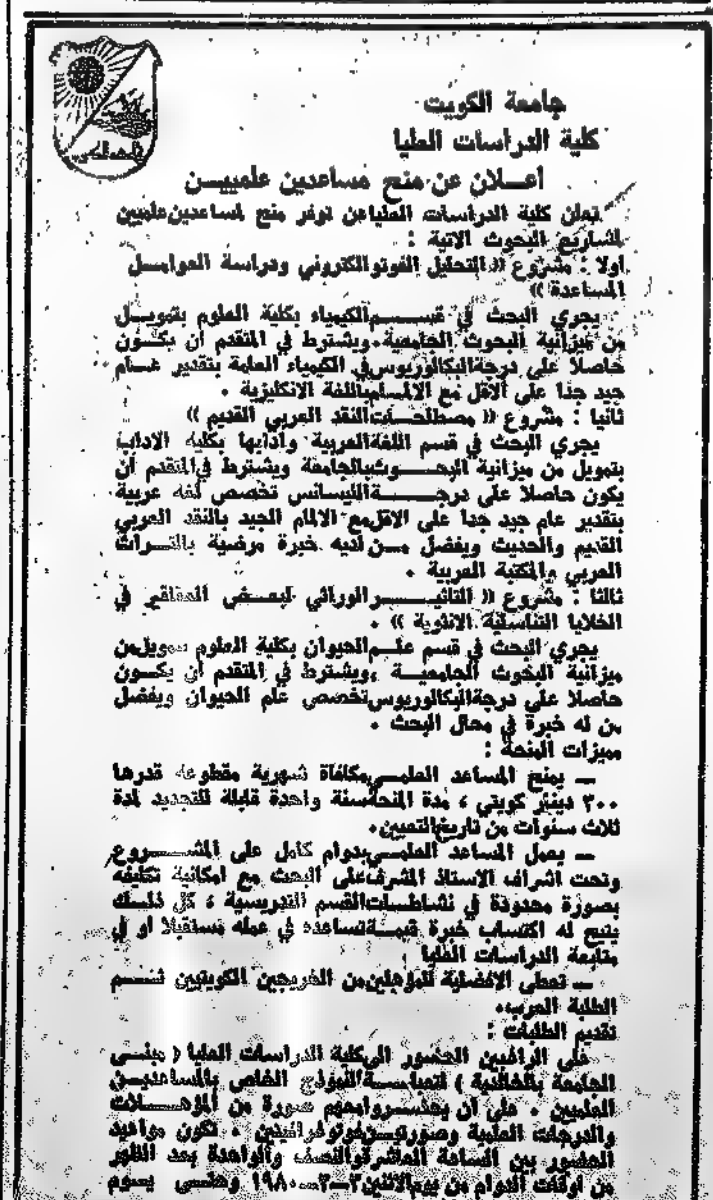 جامعة الكويت
كلية الدراسات العليا
أعلان عن منح مساعدين علميين
تعلن كلية الدراسات العليا عن توفر منح لمساعدين علميين
لمشاريع البحوث الاتية :
اولا : مشروع « التحليل الفوتوالكتروني ودراسة العوامل
المساعدة »
يجري البحث في قسم الكيمياء بكلية العلوم بتمويل
من ميزانية البحوث الجامعية ويشترط في المتقدم أن يكون
حاصلا على درجة البكالوريوس في الكيمياء العامة بتقدير عام
جيد جدا على الاقل مع الالمام باللغة الانكليزية .
ثانيا : مشروع « مصطلحات النقد العربي القديم »
يجري البحث في قسم اللغة العربية وادابها بكلية الاداب
بتمويل من ميزانية البحوث بالجامعة ويشترط في المتقدم أن
يكون حاصلا على درجة الليسانس تخصص لغة عربية
بتقدير عام جيد جدا على الاقل مع الالمام الجيد بالنقد العربي
القديم والحديث ويفضل من لديه خبرة مرضية بالتراث
العربي والمكتبة العربية .
ثالثا : مشروع « التاثير الوراثي لبعض العقاقير في
الخلايا التناسلية الانثوية » .
يجري البحث في قسم علم الحيوان بكلية العلوم بتمويل من
ميزانية البحوث الجامعية ، ويشترط في المتقدم أن يكون
حاصلا على درجة البكالوريوس تخصص علم الحيوان ويفضل
من له خبرة في مجال البحث .
مميزات المنحة :
— يمنح المساعد العلمي مكافأة شهرية مقطوعة قدرها
٣٠٠ دينار كويتي ، مدة المنحة سنة واحدة قابلة للتجديد لمدة
ثلاث سنوات من تاريخ التعيين .
— يعمل المساعد العلمي بدوام كامل على المشروع
وتحت اشراف الاستاذ المشرف على البحث مع امكانية تكليفه
بصورة محدودة في نشاطات القسم التدريسية ، كل ذلك
يتيح له اكتساب خبرة قيمة تساعده في عمله مستقبلا او في
متابعة الدراسات العليا
— تعطى الافضلية للمؤهلين من الخريجين الكويتيين ثم
الطلبة العرب .
تقديم الطلبات :
على الراغبين الحضور الى كلية الدراسات العليا ( مبنى
الجامعة بالخالدية ) لتعبئة النموذج الخاص بالمساعدين
العلميين . على ان يحضروا معهم صورة من المؤهلات
والدرجات العلمية وصورتين فوتوغرافيتين . تكون مواعيد
الحضور بين الساعة العاشرة والنصف والواحدة بعد الظهر
من اوقات الدوام من يوم الاثنين ٣—٣—١٩٨٠ وحتى يوم